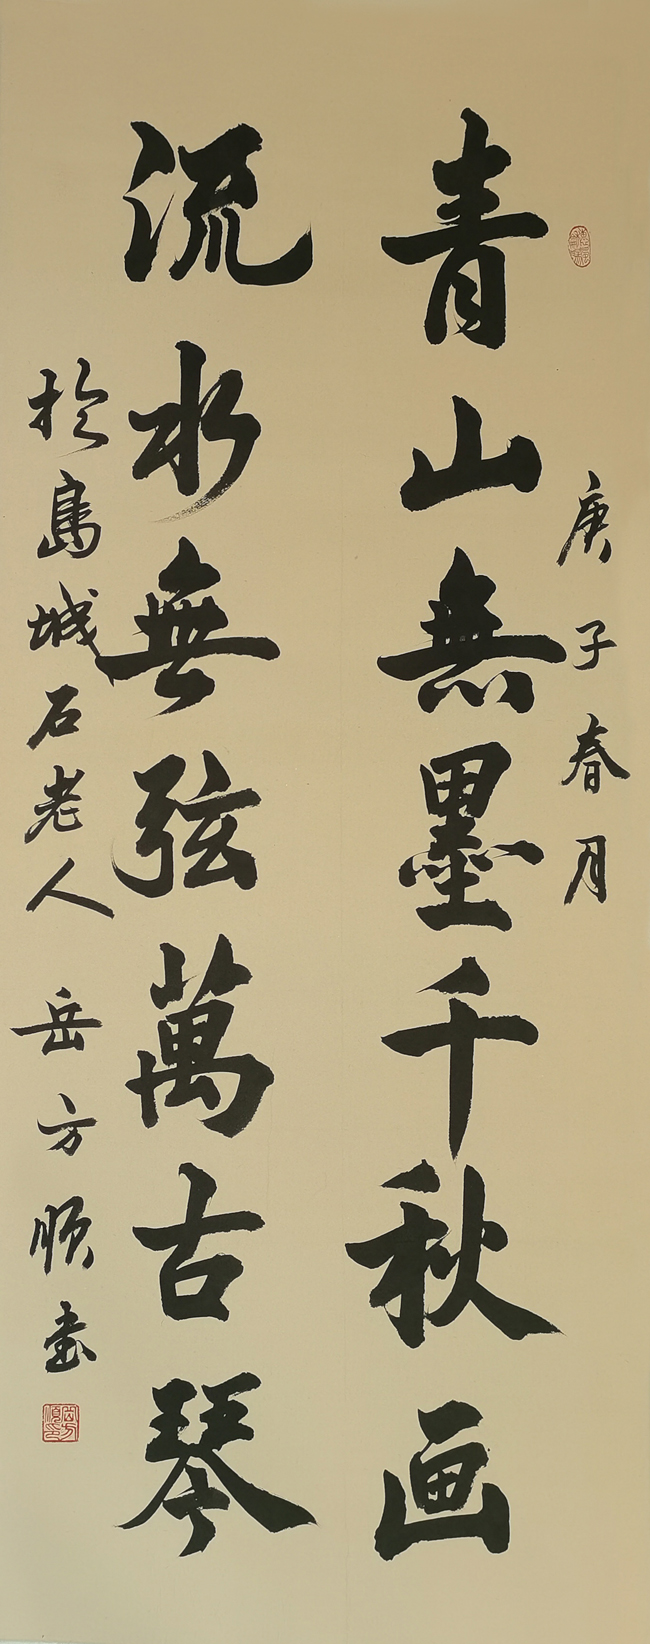 庚子春月
青山無墨千秋画
流水無弦萬古琴
於島城石老人 岳方順书
岳方順印